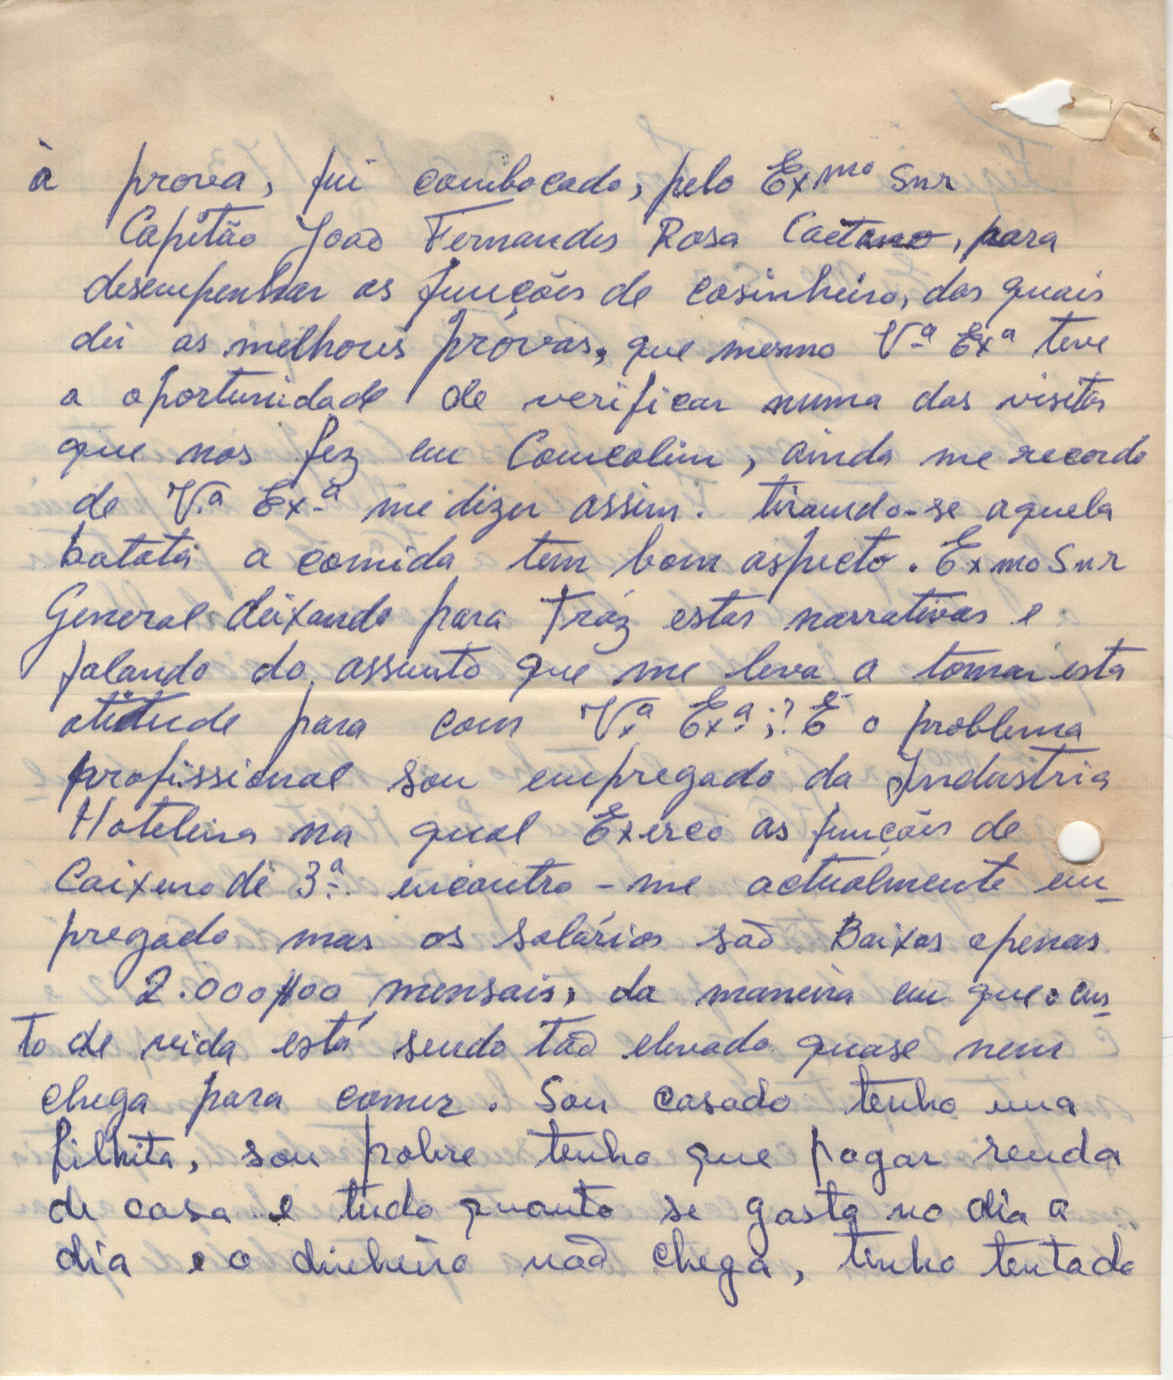 à prova, fui combocado, pelo Exmo Snr
Capitão João Fernandes Rosa Caetano, para
desempenhar as funções de cosinheiro, das quais
dei as melhores próvas, que mesmo Vª Exª teve
a oportunidade de verificar numa das visitas
que nos fez em Comcolim, ainda me recordo
de V.ª Ex.ª me dizer assim: tirando-se aquela
batata a comida tem bom aspecto. Exmo Snr
General deixando para tráz estas narrativas e
falando do assunto que me leva a tomar esta
atitude para com V.ª Ex.ª;? É o problema
profissional sou empregado da Industria
Hoteleira na qual Exerço as funções de
Caixeiro de 3ª. encontro-me actuálmente em-
pregado mas os salários são Baixos apenas
2.000$00 mensais, da maneira em que o cus-
to de vida está sendo tão elevado quase nem
chega para comer. Sou casado tenho uma
filhita, sou pobre tenho que pagar renda
de casa e tudo quanto se gasta no dia a
dia e o dinheiro não chega, tenho tentado